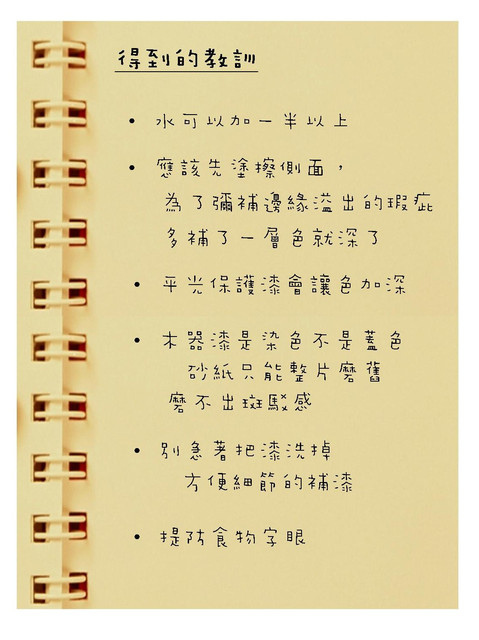 得到的教訓
• 水可以加一半以上
• 應該先塗擦側面，
為了彌補邊緣溢出的瑕疵
多補了一層色就深了
• 平光保護漆會讓色加深
• 木器漆是染色不是蓋色
砂紙只能整片磨舊
磨不出斑駁感
• 別急著把漆洗掉
方便細節的補漆
• 提防食物字眼